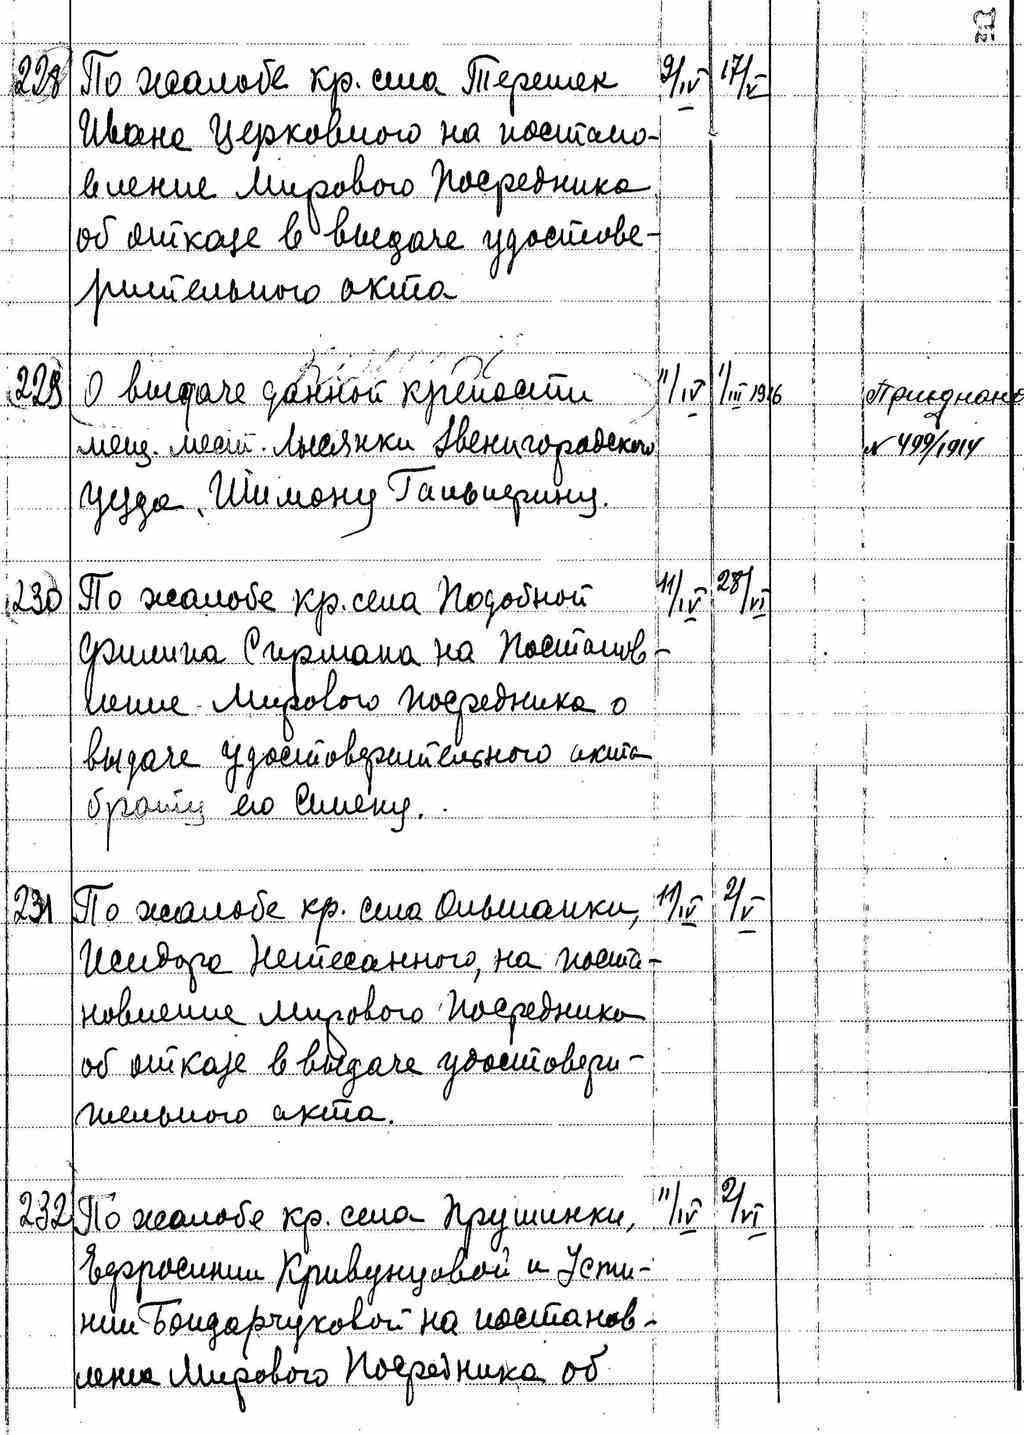 228 По жалобе кр. села Терешек 9/IV 17/V
Ивана Церковного на постано-
вление Мирового Посредника
об отказе в выдаче удостове-
рительного акта
229 О выдаче данной крепости 11/IV 1/III 1916 Приєднано
мещ. мест. Лысянки Звенигородского № 499/1914
уезда, Шимону Гальперину.
230 По жалобе кр. села Подобной 11/IV 28/VI
Филипа Сирмана на Постанов-
ление Мирового посредника о
выдаче удостоверительного акта
брату его Симену.
231 По жалобе кр. села Ольшанки, 11/IV 2/V
Исидора Нетесанного, на поста-
новление Мирового Посредника
об отказе в выдаче удостовери-
тельного акта.
232 По жалобе кр. села Прушинки, 11/IV 2/VI
Ефросинии Кривунцовой и Усти-
нии Бондарчуковой на постанов-
ление Мирового Посредника об